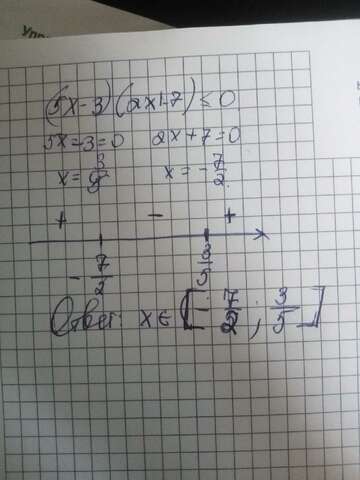 (5x-3)(2x+7)≤0
5x-3=0 2x+7=0
x=3/5 x=-7/2
+ - +
-7/2 3/5
Ответ: x∈[-7/2; 3/5]